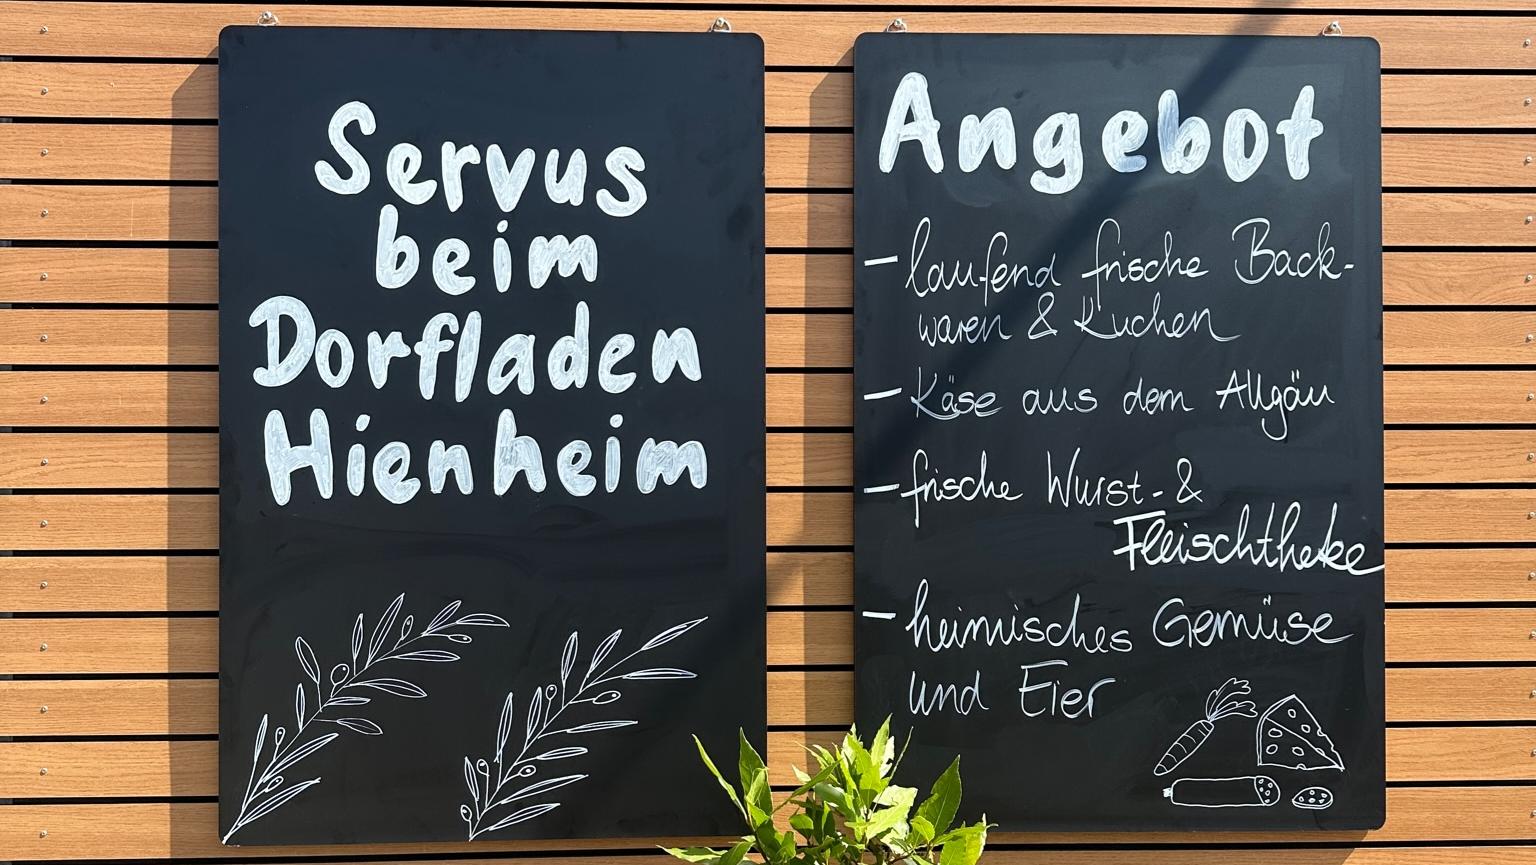 Servus
beim
Dorfladen
Hienheim
Angebot
- laufend frische Back-
waren & Kuchen
- Käse aus dem Allgäu
- frische Wurst- &
Fleischtheke
- heimisches Gemüse
und Eier